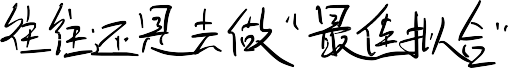 往往还是去做“最佳拟合”